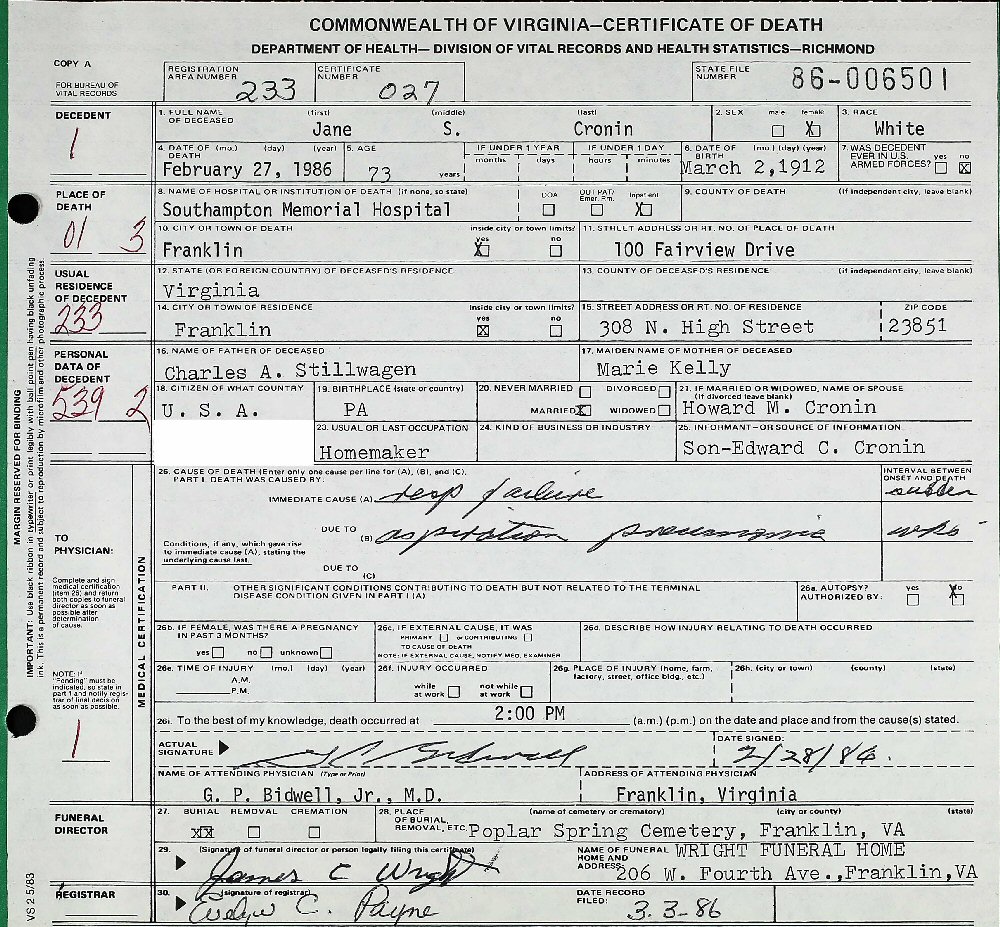 COMMONWEALTH OF VIRGINIA—CERTIFICATE OF DEATH
DEPARTMENT OF HEALTH— DIVISION OF VITAL RECORDS AND HEALTH STATISTICS—RICHMOND
COPY A
FOR BUREAU OF VITAL RECORDS
REGISTRATION AREA NUMBER 233
CERTIFICATE NUMBER 027
STATE FILE NUMBER 86-006501
DECEDENT
1
1. FULL NAME OF DECEASED (first) (middle) (last)
Jane S. Cronin
2. SEX male female X
3. RACE White
4. DATE OF DEATH (mo.) (day) (year)
February 27, 1986
5. AGE 73 years
IF UNDER 1 YEAR months days
IF UNDER 1 DAY hours minutes
6. DATE OF BIRTH (mo.) (day) (year)
March 2,1912
7. WAS DECEDENT EVER IN U.S. ARMED FORCES? yes no X
PLACE OF DEATH
01 3
8. NAME OF HOSPITAL OR INSTITUTION OF DEATH (if none, so state)
Southampton Memorial Hospital
DOA OUT PAT/ Emer. Rm. Inpatient X
9. COUNTY OF DEATH (if independent city, leave blank)
10. CITY OR TOWN OF DEATH inside city or town limits? yes X no
Franklin
11. STREET ADDRESS OR RT. NO. OF PLACE OF DEATH
100 Fairview Drive
USUAL RESIDENCE OF DECEDENT
233
12. STATE (OR FOREIGN COUNTRY) OF DECEASED'S RESIDENCE
Virginia
13. COUNTY OF DECEASED'S RESIDENCE (if independent city, leave blank)
14. CITY OR TOWN OF RESIDENCE inside city or town limits? yes X no
Franklin
15. STREET ADDRESS OR RT. NO. OF RESIDENCE ZIP CODE
308 N. High Street 23851
PERSONAL DATA OF DECEDENT
539 2
16. NAME OF FATHER OF DECEASED
Charles A. Stillwagen
17. MAIDEN NAME OF MOTHER OF DECEASED
Marie Kelly
18. CITIZEN OF WHAT COUNTRY
U. S. A.
19. BIRTHPLACE (state or country)
PA
20. NEVER MARRIED DIVORCED
MARRIED X WIDOWED
21. IF MARRIED OR WIDOWED, NAME OF SPOUSE
(If divorced leave blank)
Howard M. Cronin
23. USUAL OR LAST OCCUPATION
Homemaker
24. KIND OF BUSINESS OR INDUSTRY
25. INFORMANT—OR SOURCE OF INFORMATION
Son-Edward C. Cronin
TO PHYSICIAN:
Complete and sign medical certification (item 26) and return both copies to funeral director as soon as possible after determination of cause.
NOTE: If "Pending" must be indicated, so state in part 1 and notify registrar of final decision as soon as possible.
1
MEDICAL CERTIFICATION
26. CAUSE OF DEATH (Enter only one cause per line for (A), (B), and (C).
PART I. DEATH WAS CAUSED BY:
INTERVAL BETWEEN ONSET AND DEATH
IMMEDIATE CAUSE (A) resp failure sudden
DUE TO (B) aspiration pneumonia
Conditions, if any, which gave rise to immediate cause (A), stating the underlying cause last.
DUE TO (C)
PART II. OTHER SIGNIFICANT CONDITIONS CONTRIBUTING TO DEATH BUT NOT RELATED TO THE TERMINAL DISEASE CONDITION GIVEN IN PART I (A)
26a. AUTOPSY? AUTHORIZED BY: yes no X
26b. IF FEMALE, WAS THERE A PREGNANCY IN PAST 3 MONTHS?
yes no unknown
26c. IF EXTERNAL CAUSE, IT WAS
PRIMARY or CONTRIBUTING
TO CAUSE OF DEATH
NOTE: IF EXTERNAL CAUSE, NOTIFY MED. EXAMINER
26d. DESCRIBE HOW INJURY RELATING TO DEATH OCCURRED
26e. TIME OF INJURY (mo.) (day) (year)
A.M.
P.M.
26f. INJURY OCCURRED
while at work not while at work
26g. PLACE OF INJURY (home, farm, factory, street, office bldg., etc.)
26h. (city or town) (county) (state)
26i. To the best of my knowledge, death occurred at 2:00 PM (a.m.) (p.m.) on the date and place and from the cause(s) stated.
ACTUAL SIGNATURE
DATE SIGNED: 2/28/86.
NAME OF ATTENDING PHYSICIAN (Type or Print)
G. P. Bidwell, Jr., M.D.
ADDRESS OF ATTENDING PHYSICIAN
Franklin, Virginia
FUNERAL DIRECTOR
27. BURIAL REMOVAL CREMATION
XX
28. PLACE OF BURIAL, REMOVAL, ETC. (name of cemetery or crematory) (city or county) (state)
Poplar Spring Cemetery, Franklin, VA
29. (Signature of funeral director or person legally filing this certificate)
James C Wright
NAME OF FUNERAL HOME AND ADDRESS: WRIGHT FUNERAL HOME
206 W. Fourth Ave.,Franklin,VA
REGISTRAR
30. (signature of registrar)
Evelyn C. Payne
DATE RECORD FILED: 3-3-86
VS 2 5/83
MARGIN RESERVED FOR BINDING
IMPORTANT: Use black ribbon in typewriter or print legibly with ball point pen having black unfading ink. This is a permanent record and subject to reproduction by microfilm and other photographic process.